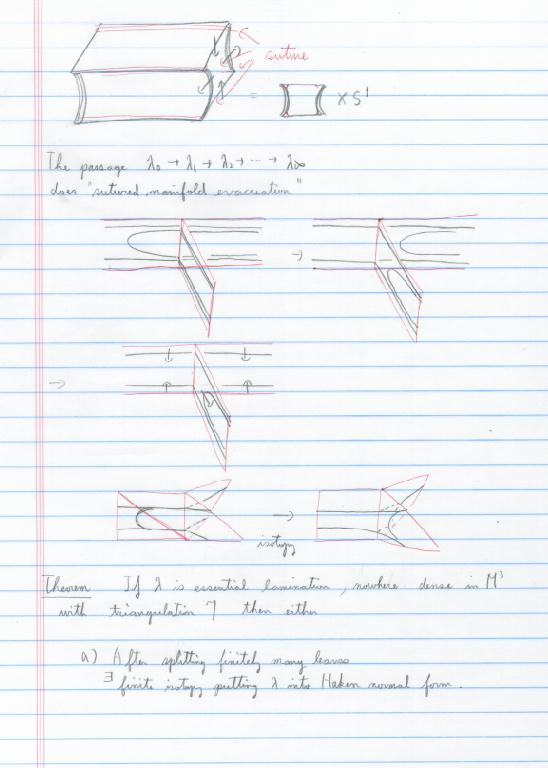 suture
= × S¹
The passage λ₀ → λ₁ → λ₂ → ⋯ → λ∞
does "sutured manifold evacuation"
→
→
→
isotopy
Theorem If λ is essential lamination, nowhere dense in M³
with triangulation T then either
a) After splitting finitely many leaves
∃ finite isotopy putting λ into Haken normal form.